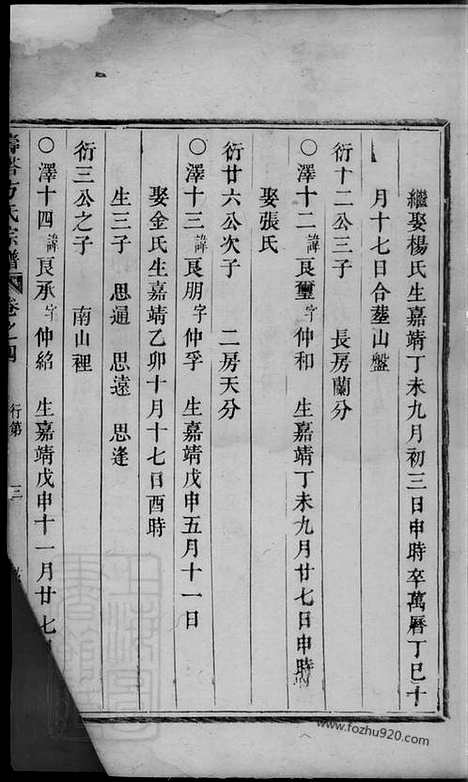 繼娶楊氏生嘉靖丁未九月初三日申時卒萬曆丁巳十
月十七日合塟山盤
衍十二公三子 長房蘭分
○澤十二諱良璽字仲和 生嘉靖丁未九月廿七日申時
娶張氏
衍廿六公次子 二房天分
○澤十三諱良朋字仲孚 生嘉靖戊申五月十一日
娶金氏生嘉靖乙卯十月十七日酉時
生三子 思通 思遠 思逢
衍三公之子 南山裡
○澤十四諱良承字仲紹 生嘉靖戊申十一月廿七
方氏宗譜 卷之四 行第 三
www.fozhu920.com